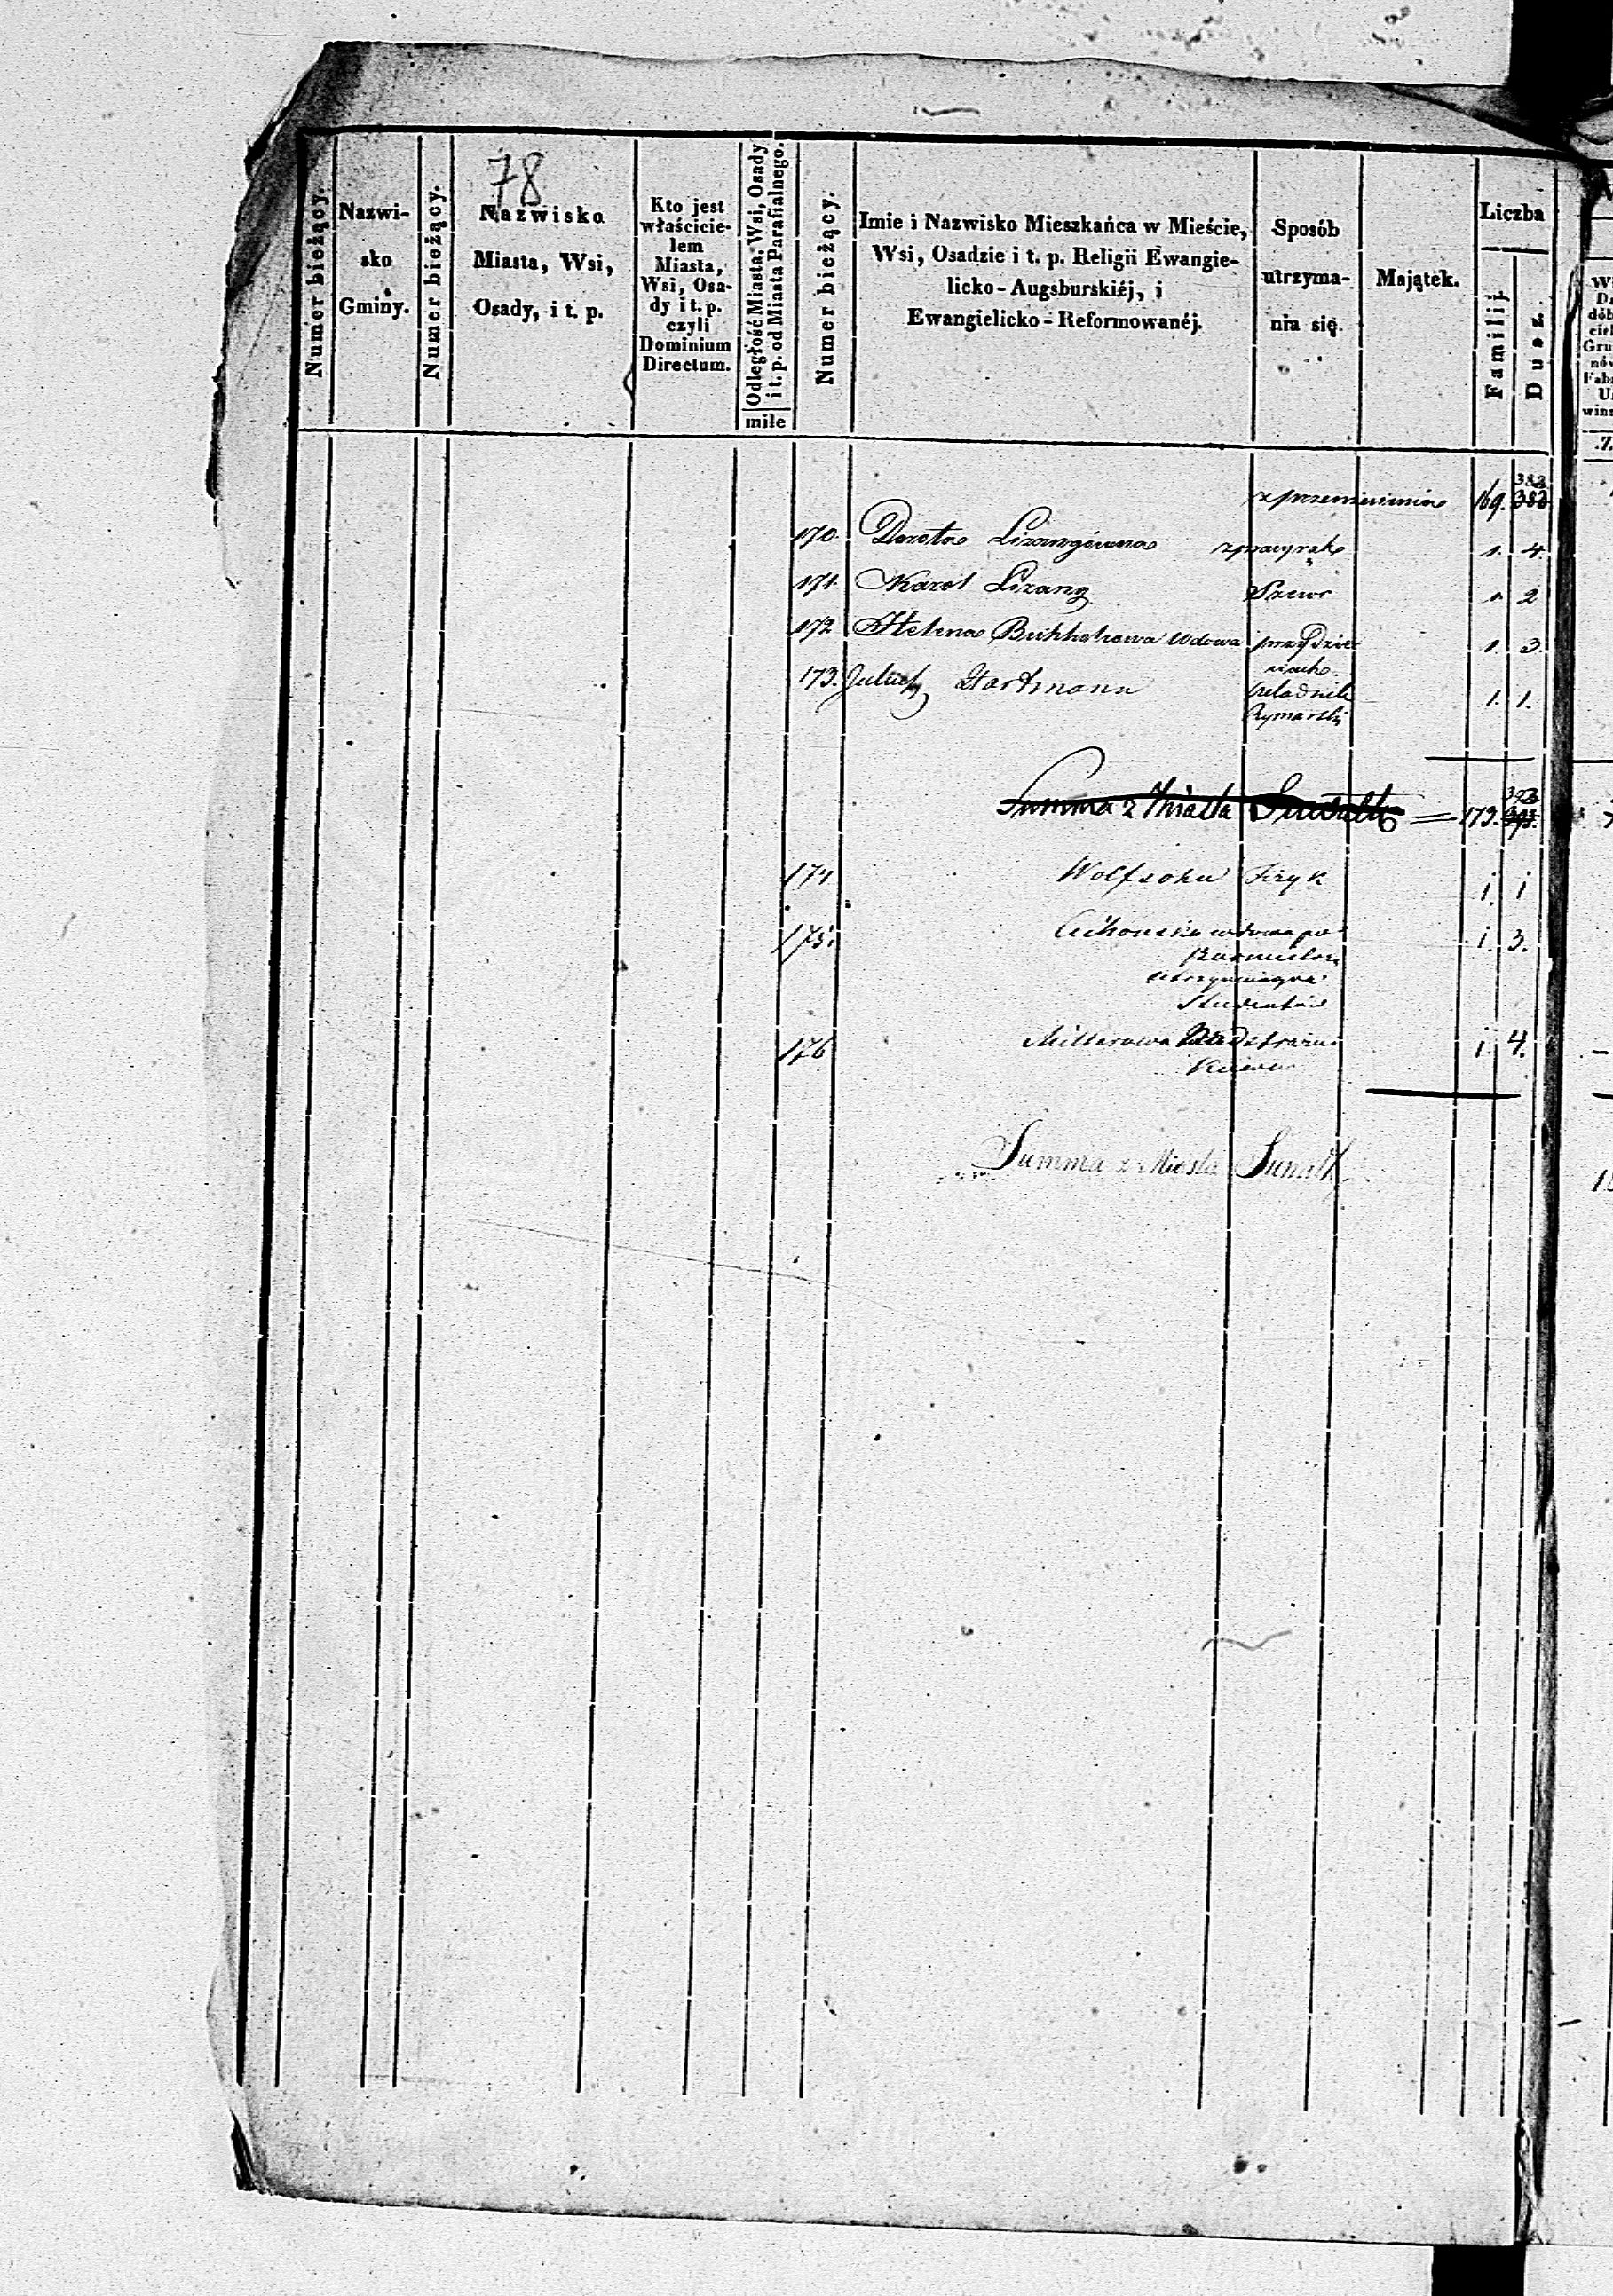 78
Numer bieżący.
Nazwi-
sko
Gminy.
Numer bieżący.
Nazwisko
Miasta, Wsi,
Osady, i t. p.
Kto jest
właścicie-
lem
Miasta,
Wsi, Osa-
dy i t. p.
czyli
Dominium
Directum.
Odległość Miasta, Wsi, Osady
i t. p. od Miasta Parafialnego.
mile
Numer bieżący.
Imie i Nazwisko Mieszkańca w Mieście,
Wsi, Osadzie i t. p. Religii Ewangie-
licko-Augsburskiéj, i
Ewangielicko-Reformowanéj.
Sposób
utrzyma-
nia się.
Majątek.
Liczba
Familij
Dusz.
z przeniesienia 169. 383
170. Dorota Lizangówna z pracy rąk 1. 4.
171. Karol Lizang Szewc 1 2
172 Helena wdowa przy dzie- 1. 3.
ciach.
173. Hartmann Czeladnik 1. 1.
Rymarski
Summa z Miasta Suwałk = 173. 393
174 Wolfsohn Fizyk 1. 1
175. wdowa po 1. 3.
Burmistrzu
utrzymująca
Studentów
176 Millerowa 1. 4.
Summa z Miasta Suwałk.